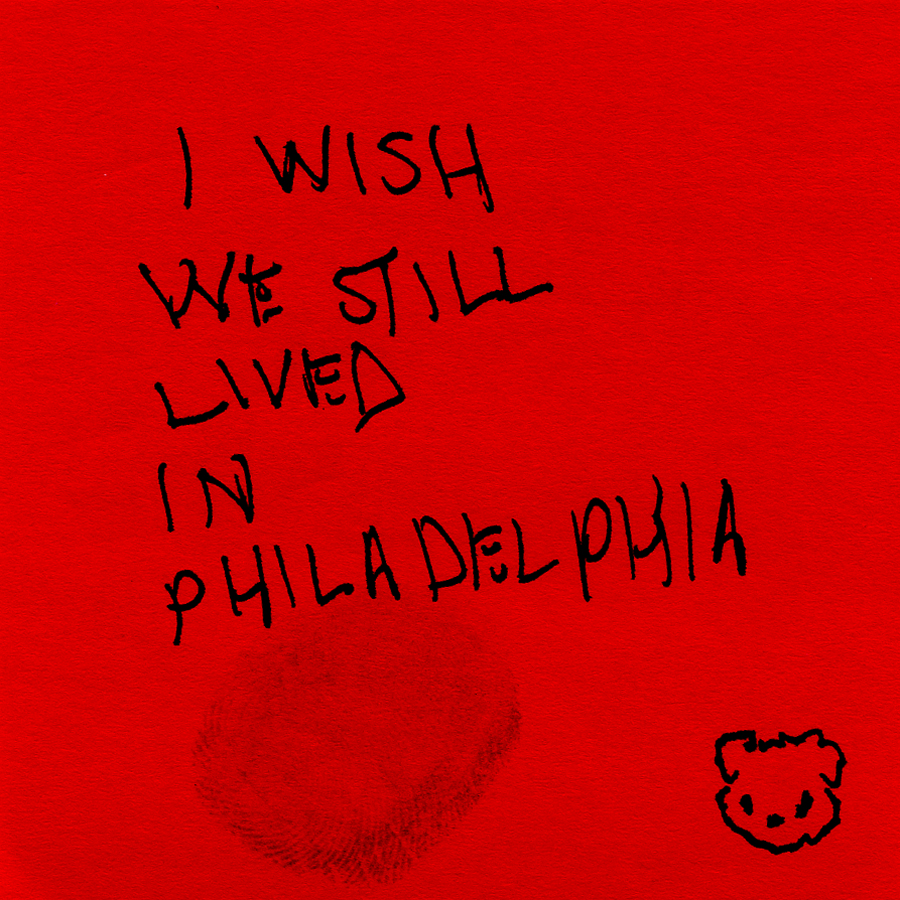 I WISH
WE STILL
LIVED
IN
PHILADELPHIA